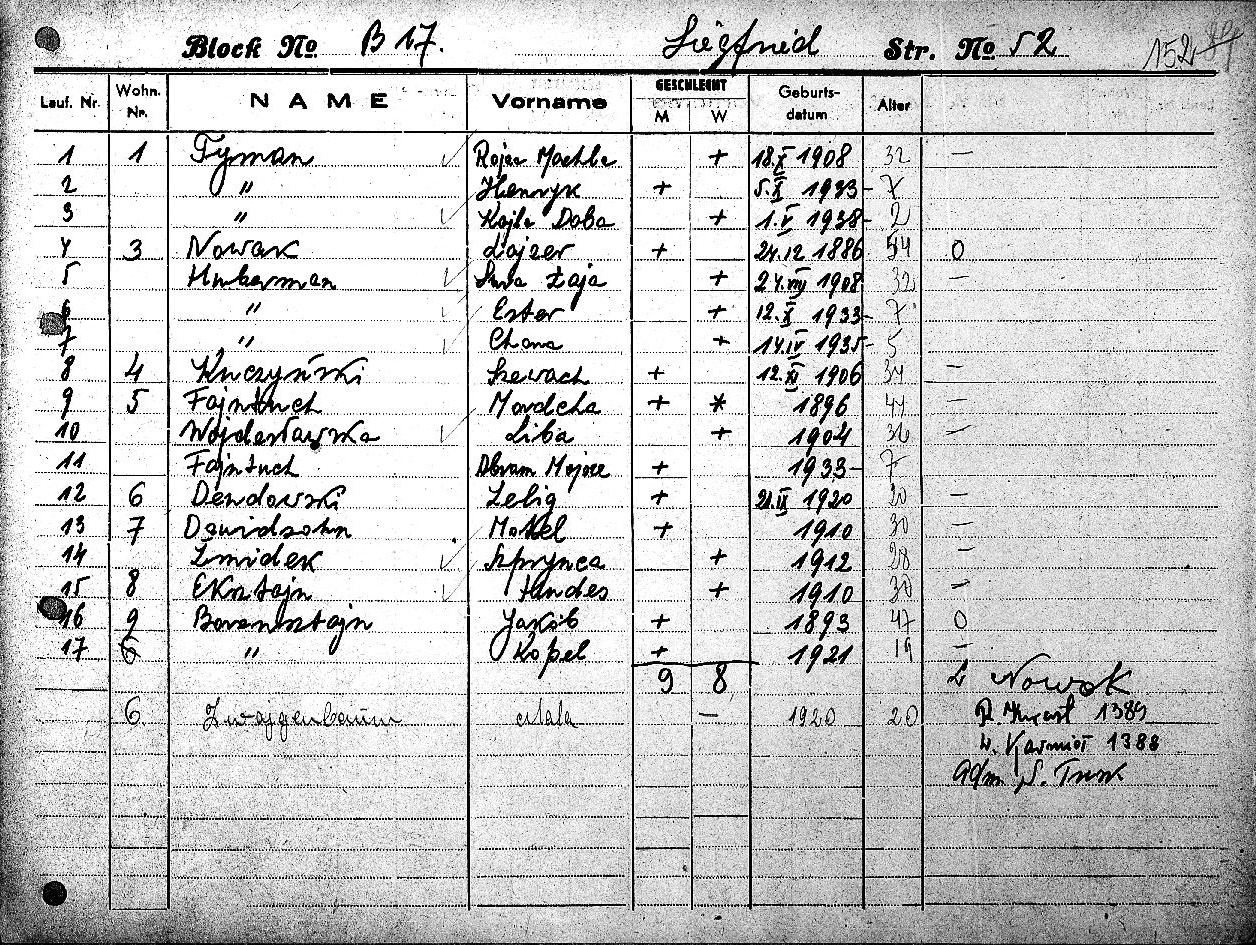 Block No B 17. Siegfried Str. No 52 152
Lauf. Nr. Wohn. Nr. NAME Vorname GESCHLECHT M W Geburts-datum Alter
1 1 Tyman Rojza Machla + 18.X 1908 32 —
2 " Henryk + 5.X 1933 - 7
3 " Kajla Doba + 1.V 1938 - 2
4 3 Nowak Lajzer + 24.12 1886 54 0
5 Huberman Sura Łaja + 24.VIII 1908 32 —
6 " Ester + 12.X 1933 - 7
7 " Chana + 14.IV 1935 - 5
8 4 Kuczyński Szewach + 12.XI 1906 34 —
9 5 Fajntuch Mordcha + * 1896 44 —
10 Wojdesławska Liba + 1904 36 —
11 Fajntuch Abram Mojsze + 1933 - 7
12 6 Dendowski Zelig + 21.IX 1920 20 —
13 7 Dawidsohn Motel + 1910 30 —
14 Żmidek Szprynca + 1912 28 —
15 8 Eksztajn Handes + 1910 30 —
16 9 Borensztajn Jakób + 1893 47 0
17 6 " Kopel + 1921 19 —
9 8
L Nowak
6 Zwajgenbaum Mala — 1920 20
1389
1388
Adm